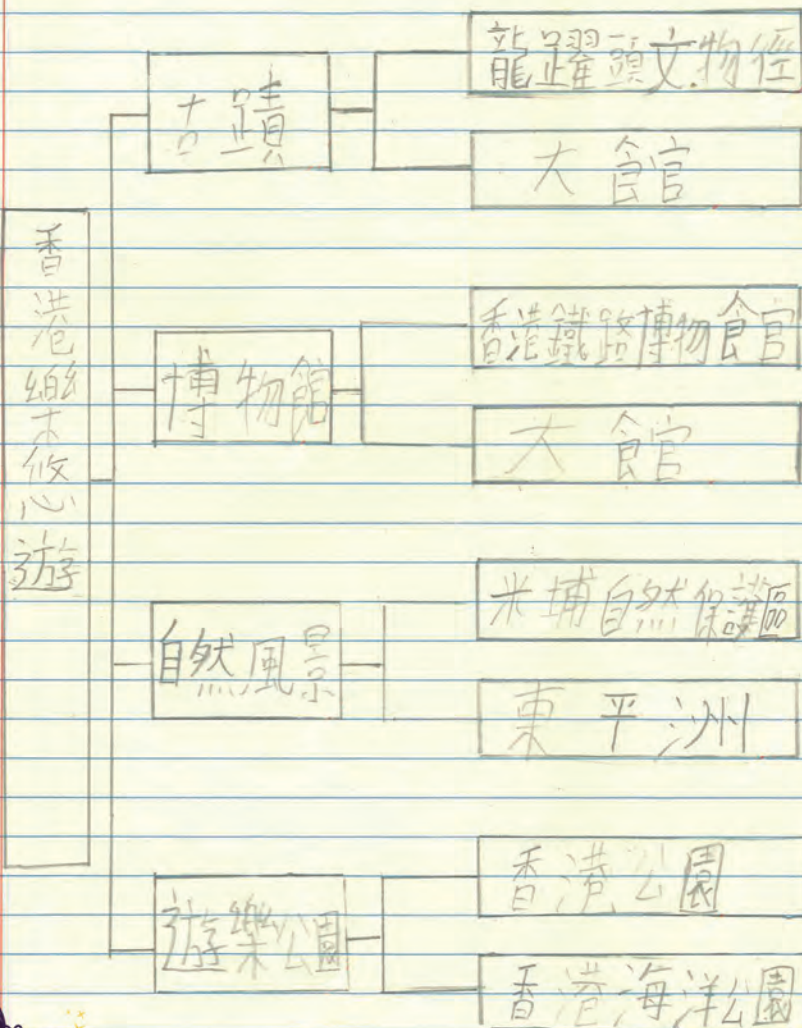 香港樂悠遊
古蹟
龍躍頭文物徑
大館
博物館
香港鐵路博物館
大館
自然風景
米埔自然保護區
東平洲
遊樂公園
香港公園
香港海洋公園